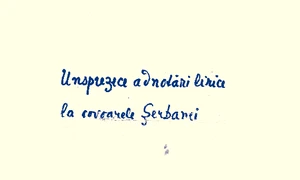 Unsprezece adnotări lirice
la covoarele Șerbanei